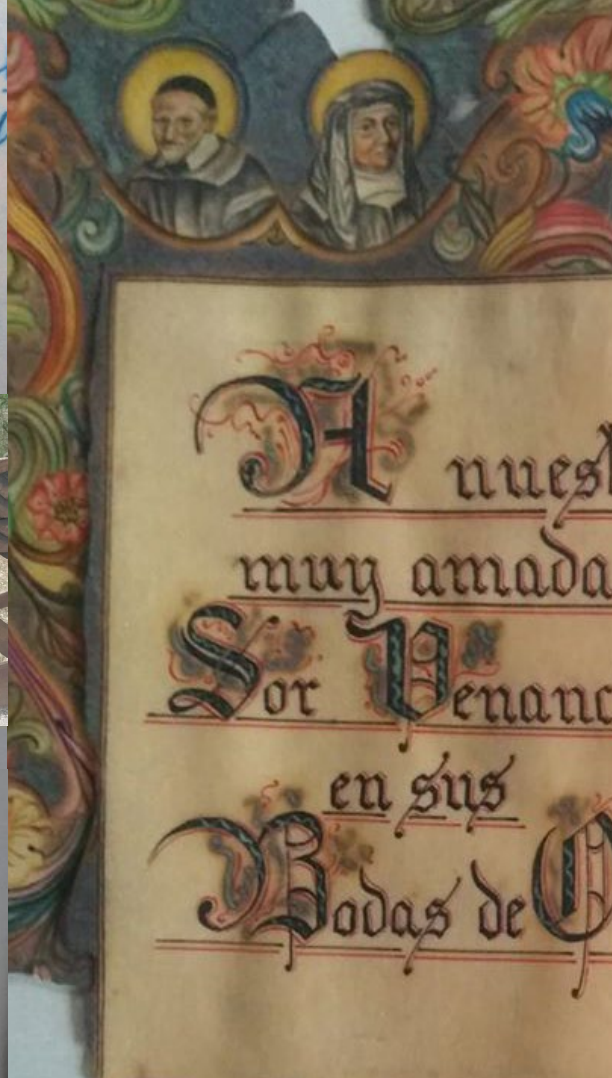 A nuest
muy amada
Sor Venanc
en sus
Bodas de O